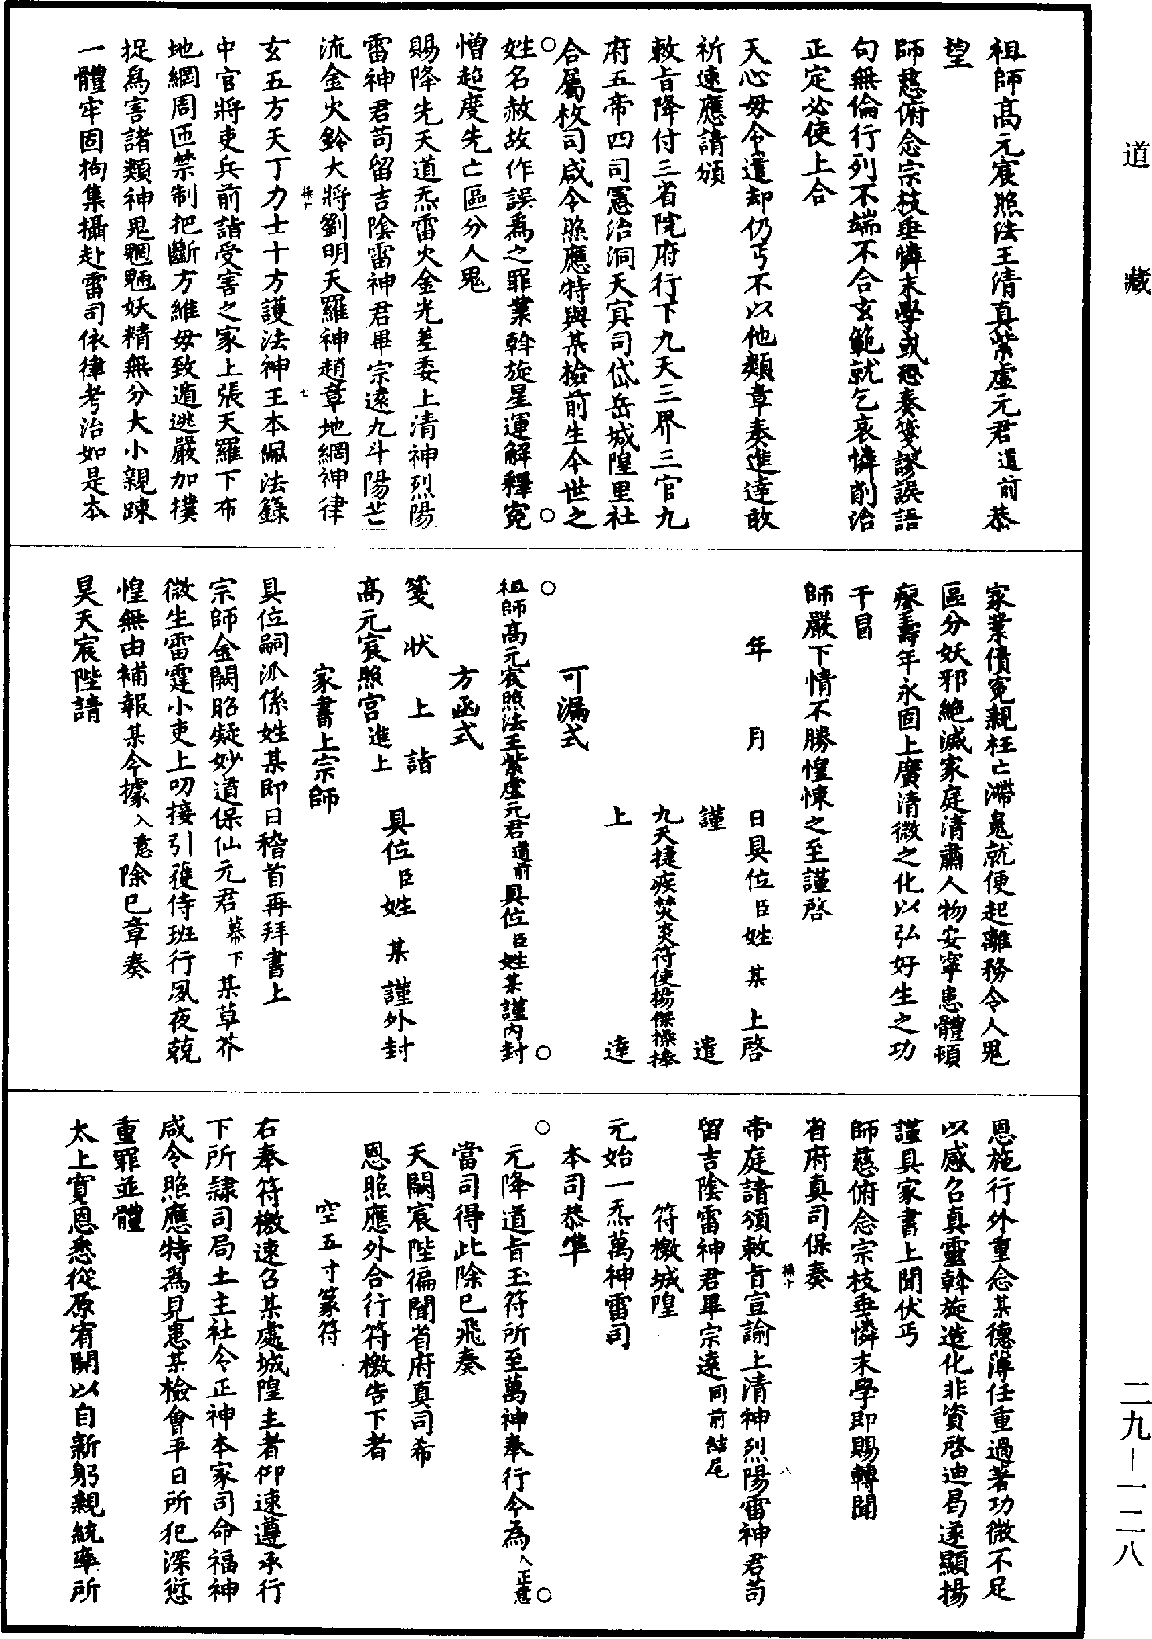 道藏
祖師高元宸照法王清真紫虛元君道前恭
望
師慈俯念宗枝垂憐末學或恐奏箋謬誤語
句無倫行列不端不合玄範就乞哀憐削治
正定必使上合
天心毋令遣却仍丐不以他類章奏進達敢
祈速應請頒
敕旨降付三省院府行下九天三界三官九
府五帝四司憲治洞天冥司岱岳城隍里社
合屬攸司咸令照應特與某檢前生今世之
姓名赦故作誤為之罪業斡旋星運解釋冤
憎超度先亡區分人鬼
賜降先天道炁雷火金光差委上清神烈陽
雷神君苟留吉陰雷神君畢宗遠九斗陽芒
流金火鈴大將劉明天羅神趙章地網神律
玄五方天丁力士十方護法神王本佩法籙
中官將吏兵前詣受害之家上張天羅下布
地網周匝禁制把斷方維毋致遁逃嚴加撲
捉為害諸類神鬼魍魎妖精無分大小親踈
一體牢固拘集攝赴雷司依律考治如是本
家業債冤親枉亡滯鬼就便起離務令人鬼
區分妖邪絕滅家庭清肅人物安寧患體頓
瘳壽年永固上廣清微之化以弘好生之功
干冒
師嚴下情不勝惶悚之至謹啓
年 月 日具位臣姓 某 上啓
謹 遣
九天捷疾焚炎符使楊傑操捧
上 達
可漏式
祖師高元宸照法王紫虛元君道前具位臣姓某謹內封
方函式
箋狀上詣 具位臣姓 某 謹外封
高元宸照宮進上
家書上宗師
具位嗣派係姓某即日稽首再拜書上
宗師金闕昭凝妙道保仙元君幕下某草芥
微生雷霆小吏上叨接引獲侍班行夙夜兢
惶無由補報某今據入意除已章奏
昊天宸陛請
恩施行外重念某德薄任重過著功微不足
以感召真靈斡旋造化非資啓迪曷遂顯揚
謹具家書上聞伏丐
師慈俯念宗枝垂憐末學即賜轉聞
省府真司保奏
帝庭請頒敕旨宣諭上清神烈陽雷神君苟
留吉陰雷神君畢宗遠同前結尾
符檄城隍
元始一炁萬神雷司
本司恭準
元降道旨玉符所至萬神奉行今為入正意
當司得此除已飛奏
天闕宸陛徧聞省府真司希
恩照應外合行符檄告下者
空五寸篆符
右奉符檄速召某處城隍主者仰速遵承行
下所隸司局土主社令正神本家司命福神
咸令照應特為見患某檢會平日所犯深愆
重罪並體
太上寬恩悉從原宥開以自新躬親統率所
二九—一二八